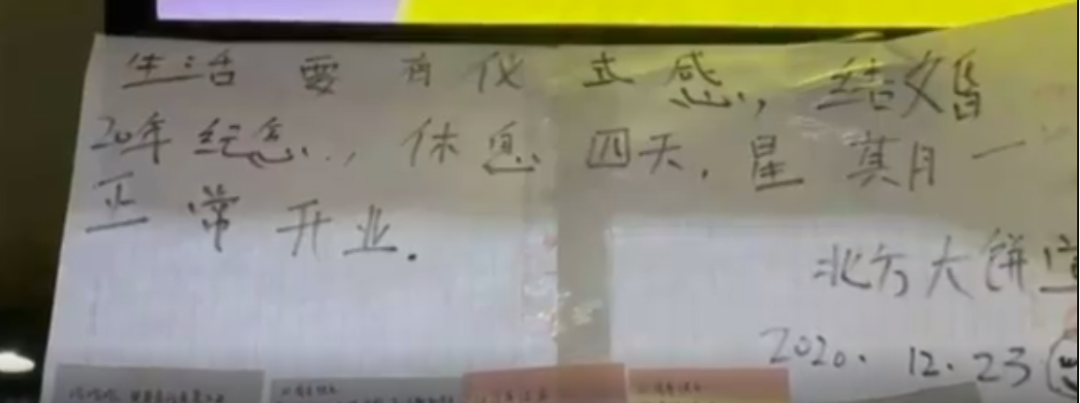 生活要有仪式感，结婚
20年纪念，休息四天，星期一
正常开业.
北方大饼
2020.12.23